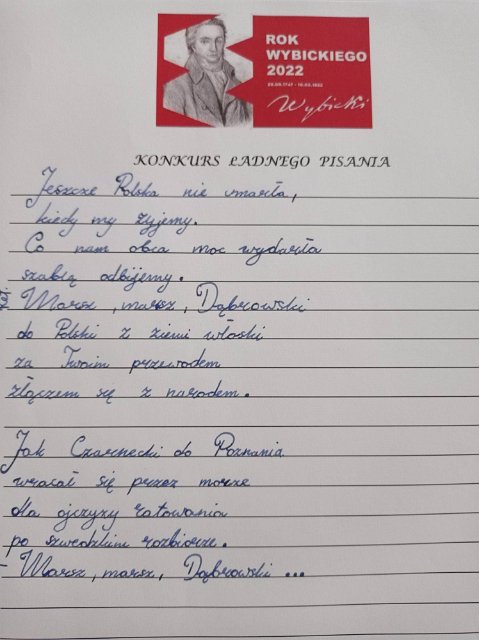 ROK
WYBICKIEGO
2022
Wybicki
KONKURS ŁADNEGO PISANIA
Jeszcze Polska nie umarła,
kiedy my żyjemy.
Co nam obca moc wydarła
szablą odbijemy.
Ref. Marsz, marsz, Dąbrowski
do Polski z ziemi włoski
za Twoim przewodem
złączem się z narodem.
Jak Czarnecki do Poznania
wracał się przez morze
dla ojczyzy ratowania
po szwedzkim rozbiorze.
- Marsz, marsz, Dąbrowski...